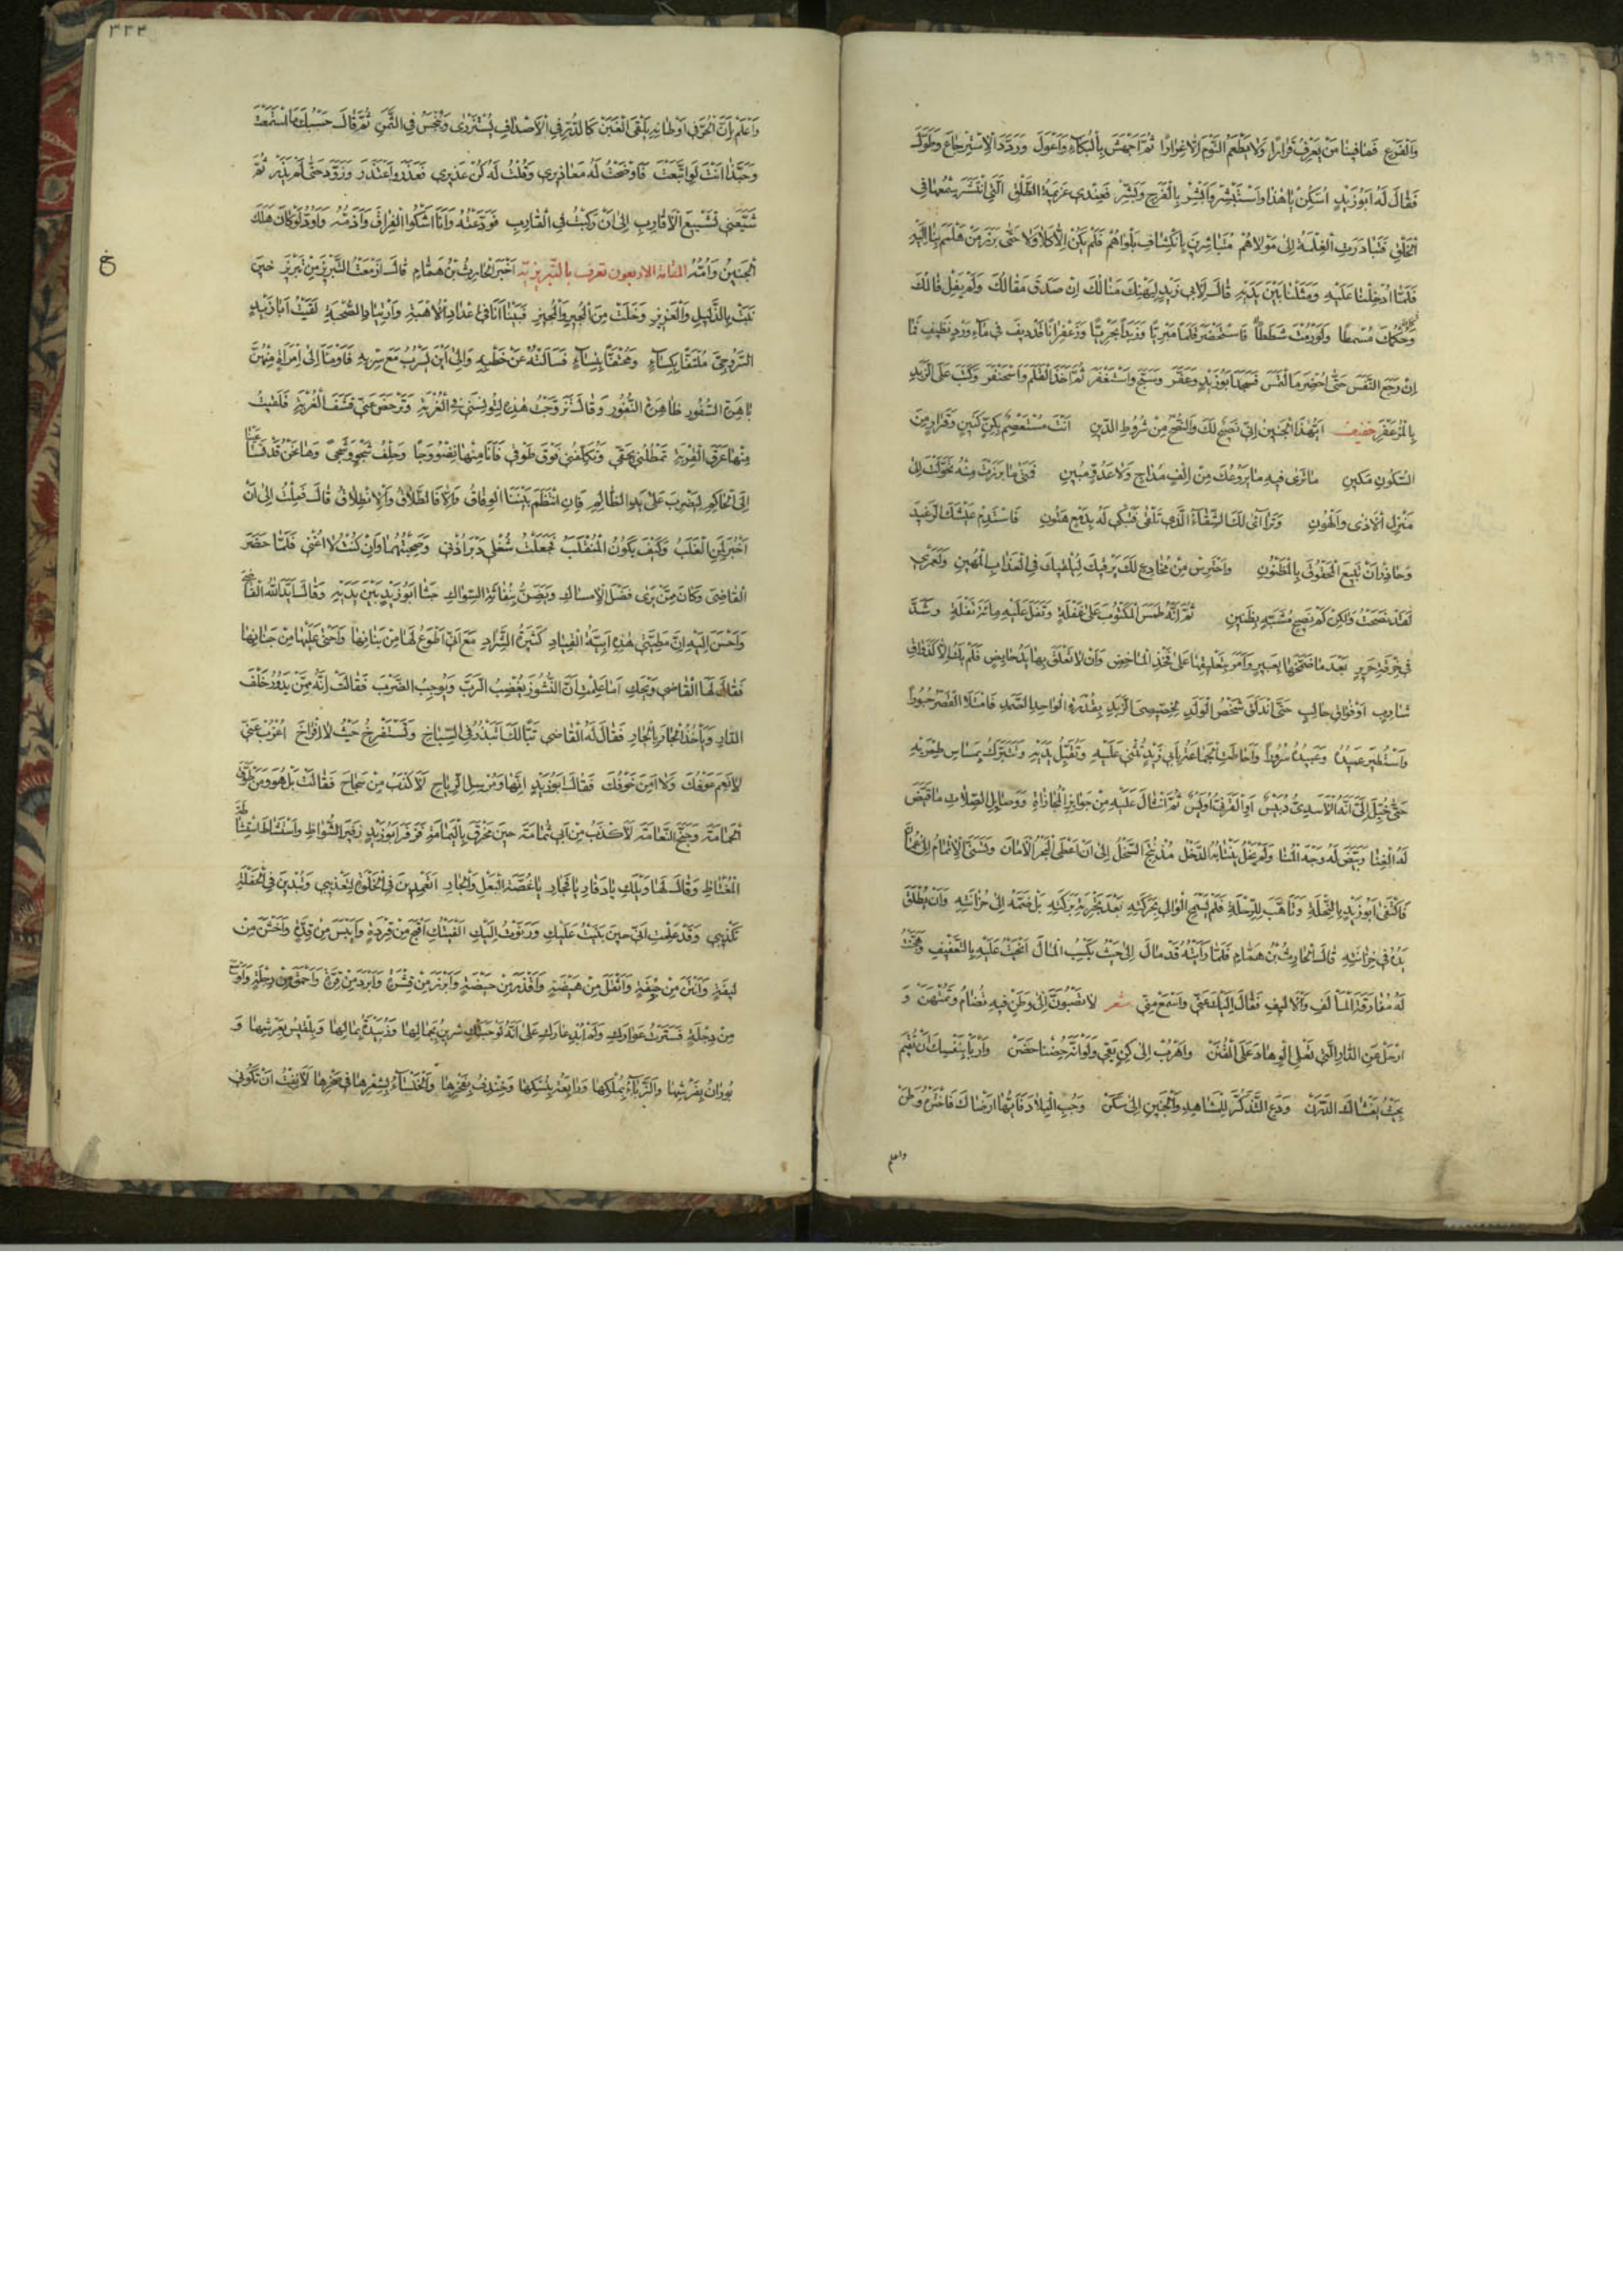 والفزع فما فينا من يعرف قرارا ولا يطعم النوم الا غرارا ثم اجهش بالبكاء واعول وردد الاسترجاع وطول
فقال له ابو زيد اسكن يا هذا واستبشر وابشر بالفرج وبشر فعندي عزيمة الطلق التي انتشر سمعها في
الخلق فتبادرت الغلمة الى مولاهم متباشرين بانكشاف بلواهم فلم يكن الا كلا ولا حتى برز من هلمم بنا اليه
فلما ادخلنا عليه ومثلنا بين يديه قال لابي زيد ليهنك منالك ان صدق مقالك ولم يفل فالك
فاستحضر قلما مبريا وزبدا بحريا وزعفرانا قد ديف في ماء ورد نظيف فما
ان رجع النفس حتى احضر ما التمس فسجد ابو زيد وعفر وسبح واستغفر ثم اخذ القلم واسحنفر وكتب على الزبد
بالمزعفر خفيف ايهذا الجنين اني نصيح لك والنصح من شروط الدين انت مستعصم بكن كنين وقرار من
السكون مكين ما ترى فيه ما يروعك من الف مداج ولا عدو مبين فمتى ما برزت منه تحولت الى
منزل الاذى والهون وترا آى لك الشقاء الذي تلقى فتبكي له بدمع هتون فاستدم عيشك الرغيد
وحاذر ان تبيع المحقوق بالمظنون واحترس من مخادع لك يرقيك ليلقيك في العذاب المهين ولعمري
لقد نصحت ولكن كم نصيح مشبه بظنين ثم انه طمس المكتوب على غفلة وتفل عليه مائة تفلة وشد
في خرقة حرير بعد ما ضمخها بعبير وامر بتعليقها على فخذ الماخض وان لا تعلق بها يد حايض فلم يك الا كذواق
شارب او فواق حالب حتى اندلق شخص الولد لخصيصى الزبد بقدرة الواحد الصمد فامتلا القصر حبورا
واستطير عميده وعبيده سرورا واحاطت الجماعة بابي زيد تثني عليه وتقبل يديه وتتبرك بمساس طمريه
حتى خيل الي انه الاسدي دبيس او القرني اويس ثم انثال عليه من جوايز المجازاة ووصايل الصلات ما قيض
له الغنا وبيض له وجه المنا ولم يزل ينتابه الدخل مذ نتج السخل الى ان اعطى البحر الامان وتسنى الاتمام الى عمان
فاكتفى ابو زيد بالنحلة وتاهب للرحلة فلم يسمح الوالي بحركته بعد تجربة بركته بل ضمه الى خزانته وان يطلق
يده في خزانته قال الحارث بن همام فلما رايته قد مال الى حيث يكسب المال انحيت عليه بالتعنيف وهجنت
له مفارقة المألف والاليف فقال اليك عني واسمع مني شعر لا تصبون الى وطن فيه تضام وتمتهن و
ارحل عن الدار التي تعلي الوهاد على القنن واهرب الى كن يقي ولو انه حضنا حضن واربأ بنفسك ان تقيم
بحيث يغشاك الدرن ودع التذكر للمعاهد والحنين الى سكن وجب البلاد فايها ارضاك فاختره وطن
واعلم
٣٣٤
واعلم بان الحر في اوطانه يلقى الغبن كالدر في الاصداف يستزرى ويبخس في الثمن ثم قال حسبك ما استمعت
وحبذا انت لو اتبعت فاوضحت له معاذيري وقلت له كن عذيري فعذر واعتذر وزود حتى لم يذر ثم
شيعني تشييع الاقارب الى ان ركبت في القارب فودعته وانا اشكو الفراق واذمه واود لو كان هلك
الجنين وامه المقامة الاربعون تعرف بالتبريزية اخبر الحارث بن همام قال ازمعت التبريز من تبريز حين
نبت بالذليل والعزيز وخلت من المجير والمجيز فبينا انا في اعداد الاهبة وارتياد الصحبة لقيت ابا زيد
السروجي ملتفا بكساء ومحتفا بنساء فسالته عن خطبه والى اين يسرب مع سربه فاومأ الى امراة منهن
باهرة السفور ظاهرة النفور وقال تزوجت هذه لتونسني في الغربة وترحض عني قشف العزبة فلقيت
منها عرق القربة تمطلني بحقي وتكلفني فوق طوقي فانا منها نضو وجا وحلف شجو وشجى وها نحن قد تساعينا
الى الحاكم ليضرب على يد الظالم فان انتظم بيننا الوفاق والا فالطلاق والانطلاق قال فملت الى ان
اخبر لمن الغلب وكيف يكون المنقلب فجعلت شغلي دبر اذني وصحبتهما وان كنت لا اغني فلما حضر
القاضي وكان ممن يرى فضل الامساك ويضن بنفاثة السواك جثا ابو زيد بين يديه وقال ايد الله القاضي
واحسن اليه ان مطيتي هذه ابية القياد كثيرة الشراد مع اني اطوع لها من بنانها واحنى عليها من جنانها
فقال لها القاضي ويحك اما علمت ان النشوز يغضب الرب ويوجب الضرب فقالت انه ممن يدور خلف
الدار وياخذ الجار بالجار فقال له القاضي تبا لك اتبذر في السباخ وتستفرخ حيث لا افراخ اعزب عني
لا نعم عوفك ولا امن خوفك فقال ابو زيد انها ومرسل الرياح لاكذب من سجاح فقالت بل هو ومن طوق
الحمامة وجنح النعامة لاكذب من ابي ثمامة حين مخرق باليمامة فزفر ابو زيد زفير الشواظ واستشاط استشاطة
المغتاظ وقال لها ويلك يا دفار يا فجار يا غصة البعل والجار اتعمدين في الخلوة لتعذيبي وتبدين في الحفلة
تكذيبي وقد علمت اني حين بنيت عليك ورنوت اليك الفيتك اقبح من قردة وايبس من قدة واخشن من
ليفة وانتن من جيفة واثقل من هيضة واقذر من حيضة وابرز من قشرة وابرد من قرة واحمق من رجلة واوسع
من دجلة فسترت عوارك ولم ابد عارك على انه لو حبتك شيرين بجمالها وزبيدة بمالها وبلقيس بعرشها و
بوران بفرشها والزباء بملكها ورابعة بنسكها وخندف بفخرها والخنساء بشعرها في صخرها لانفت ان تكوني